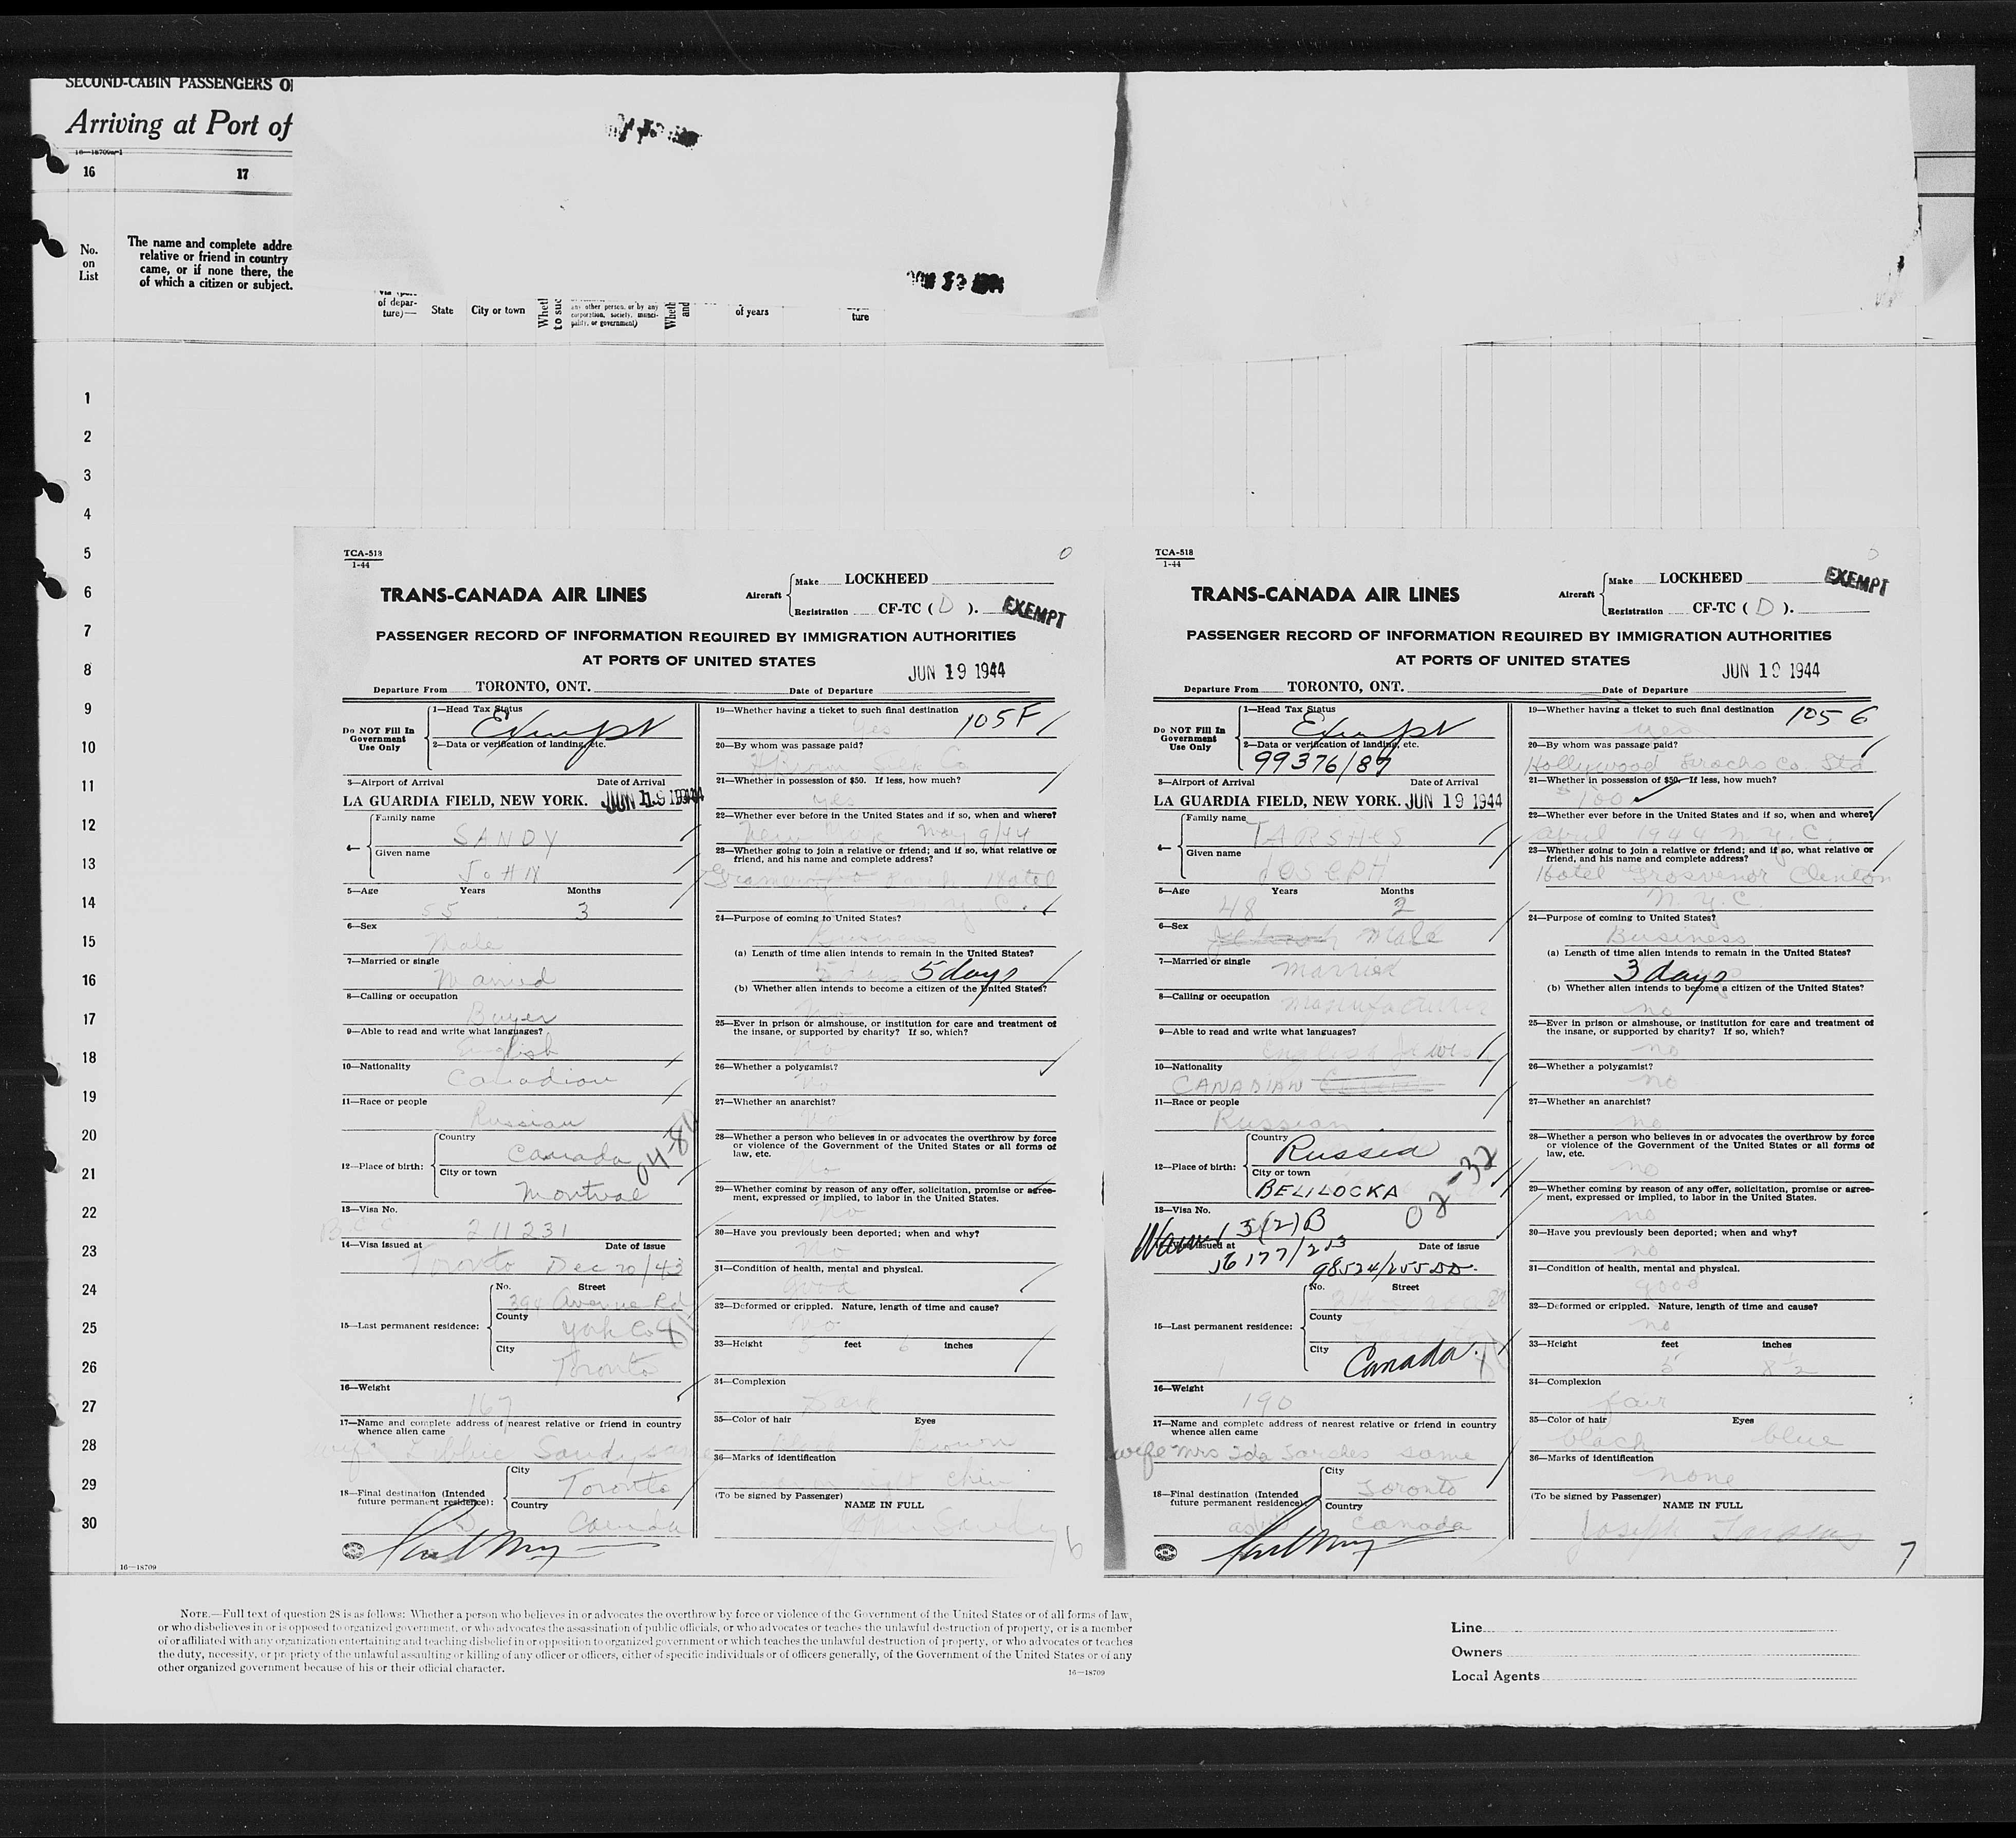 SECOND-CABIN PASSENGERS O
Arriving at Port of
16—18709a-1
16 17
No. on List
The name and complete addre
relative or friend in country
came, or if none there, the
of which a citizen or subject.
of depar-
ture)—
State
City or town
any other person, or by any
corporation, society, munici-
pality, or government)
of years
ture
1
2
3
4
5
6
7
8
9
10
11
12
13
14
15
16
17
18
19
20
21
22
23
24
25
26
27
28
29
30
16—18709
TCA-518
1-44
TRANS-CANADA AIR LINES
Aircraft Make LOCKHEED
Registration CF-TC ( D ).
EXEMPT
PASSENGER RECORD OF INFORMATION REQUIRED BY IMMIGRATION AUTHORITIES
AT PORTS OF UNITED STATES
JUN 19 1944
Departure From TORONTO, ONT. Date of Departure
Do NOT Fill In Government Use Only
1—Head Tax Status
Exempt
2—Data or verification of landing, etc.
3—Airport of Arrival Date of Arrival
LA GUARDIA FIELD, NEW YORK. JUN 19 1944
4— Family name
SANDY
Given name
JOHN
5—Age Years Months
55 3
6—Sex
Male
7—Married or single
Married
8—Calling or occupation
Buyer
9—Able to read and write what languages?
English
10—Nationality
Canadian
11—Race or people
Russian
12—Place of birth: Country
Canada
City or town
Montreal
04-8
13—Visa No.
211231
14—Visa issued at Date of issue
Toronto Dec 20/43
15—Last permanent residence: No. Street
Avenue Rd
County
York Co
City
Toronto
16—Weight
167
17—Name and complete address of nearest relative or friend in country
whence alien came
wife Sandy same
18—Final destination (Intended
future permanent residence):
City
Toronto
Country
Canada
19—Whether having a ticket to such final destination
yes 105 F
20—By whom was passage paid?
Silk Co
21—Whether in possession of $50. If less, how much?
yes
22—Whether ever before in the United States and if so, when and where?
New York May 9/44
23—Whether going to join a relative or friend; and if so, what relative or
friend, and his name and complete address?
Park Hotel
N.Y.C.
24—Purpose of coming to United States?
Business
(a) Length of time alien intends to remain in the United States?
5 days 5 days
(b) Whether alien intends to become a citizen of the United States?
No
25—Ever in prison or almshouse, or institution for care and treatment of
the insane, or supported by charity? If so, which?
No
26—Whether a polygamist?
No
27—Whether an anarchist?
No
28—Whether a person who believes in or advocates the overthrow by force
or violence of the Government of the United States or all forms of
law, etc.
No
29—Whether coming by reason of any offer, solicitation, promise or agree-
ment, expressed or implied, to labor in the United States.
No
30—Have you previously been deported; when and why?
No
31—Condition of health, mental and physical.
Good
32—Deformed or crippled. Nature, length of time and cause?
No
33—Height feet inches
5 6
34—Complexion
Dark
35—Color of hair Eyes
Black Brown
36—Marks of identification
chin
(To be signed by Passenger)
NAME IN FULL
John Sandy
6
TCA-518
1-44
TRANS-CANADA AIR LINES
Aircraft Make LOCKHEED
Registration CF-TC ( D ).
EXEMPT
PASSENGER RECORD OF INFORMATION REQUIRED BY IMMIGRATION AUTHORITIES
AT PORTS OF UNITED STATES
JUN 19 1944
Departure From TORONTO, ONT. Date of Departure
Do NOT Fill In Government Use Only
1—Head Tax Status
Exempt
2—Data or verification of landing, etc.
99376/87
3—Airport of Arrival Date of Arrival
LA GUARDIA FIELD, NEW YORK. JUN 19 1944
4— Family name
TARSHES
Given name
JOSEPH
5—Age Years Months
48 2
6—Sex
Male
7—Married or single
Married
8—Calling or occupation
Manufacturer
9—Able to read and write what languages?
English Jewish
10—Nationality
CANADIAN
11—Race or people
Russian
12—Place of birth: Country
Russia
City or town
BELILOCKA
02-32
13—Visa No.
3(2)B
14—Visa issued at Date of issue
16177/213
98524/255
15—Last permanent residence: No. Street
County
City
Canada
16—Weight
190
17—Name and complete address of nearest relative or friend in country
whence alien came
wife Mrs Ida Tarshes same
18—Final destination (Intended
future permanent residence):
City
Toronto
Country
Canada
19—Whether having a ticket to such final destination
yes 105 G
20—By whom was passage paid?
Hollywood Co. Ltd
21—Whether in possession of $50. If less, how much?
$100
22—Whether ever before in the United States and if so, when and where?
April 1944 N.Y.C.
23—Whether going to join a relative or friend; and if so, what relative or
friend, and his name and complete address?
Hotel Grosvenor Clinton
N.Y.C.
24—Purpose of coming to United States?
Business
(a) Length of time alien intends to remain in the United States?
3 days
(b) Whether alien intends to become a citizen of the United States?
no
25—Ever in prison or almshouse, or institution for care and treatment of
the insane, or supported by charity? If so, which?
no
26—Whether a polygamist?
no
27—Whether an anarchist?
no
28—Whether a person who believes in or advocates the overthrow by force
or violence of the Government of the United States or all forms of
law, etc.
no
29—Whether coming by reason of any offer, solicitation, promise or agree-
ment, expressed or implied, to labor in the United States.
no
30—Have you previously been deported; when and why?
no
31—Condition of health, mental and physical.
good
32—Deformed or crippled. Nature, length of time and cause?
no
33—Height feet inches
5 8½
34—Complexion
fair
35—Color of hair Eyes
black blue
36—Marks of identification
none
(To be signed by Passenger)
NAME IN FULL
Joseph
7
NOTE.—Full text of question 28 is as follows: Whether a person who believes in or advocates the overthrow by force or violence of the Government of the United States or of all forms of law,
or who disbelieves in or is opposed to organized government, or who advocates the assassination of public officials, or who advocates or teaches the unlawful destruction of property, or is a member
of or affiliated with any organization entertaining and teaching disbelief in or opposition to organized government or which teaches the unlawful destruction of property, or who advocates or teaches
the duty, necessity, or propriety of the unlawful assaulting or killing of any officer or officers, either of specific individuals or of officers generally, of the Government of the United States or of any
other organized government because of his or their official character.
16—18709
Line
Owners
Local Agents